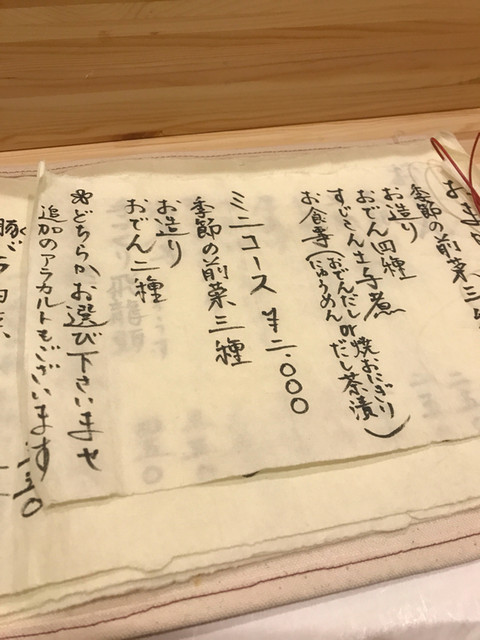 季節の前菜三
お造り
おでん四種
すじこん玉子煮
お食事(おでんだしor焼おにぎり
にゅうめん だし茶漬)
ミニコース ¥二.〇〇〇
季節の前菜三種
お造り
おでん二種
※どちらかお選び下さいませ
追加のアラカルトもございます